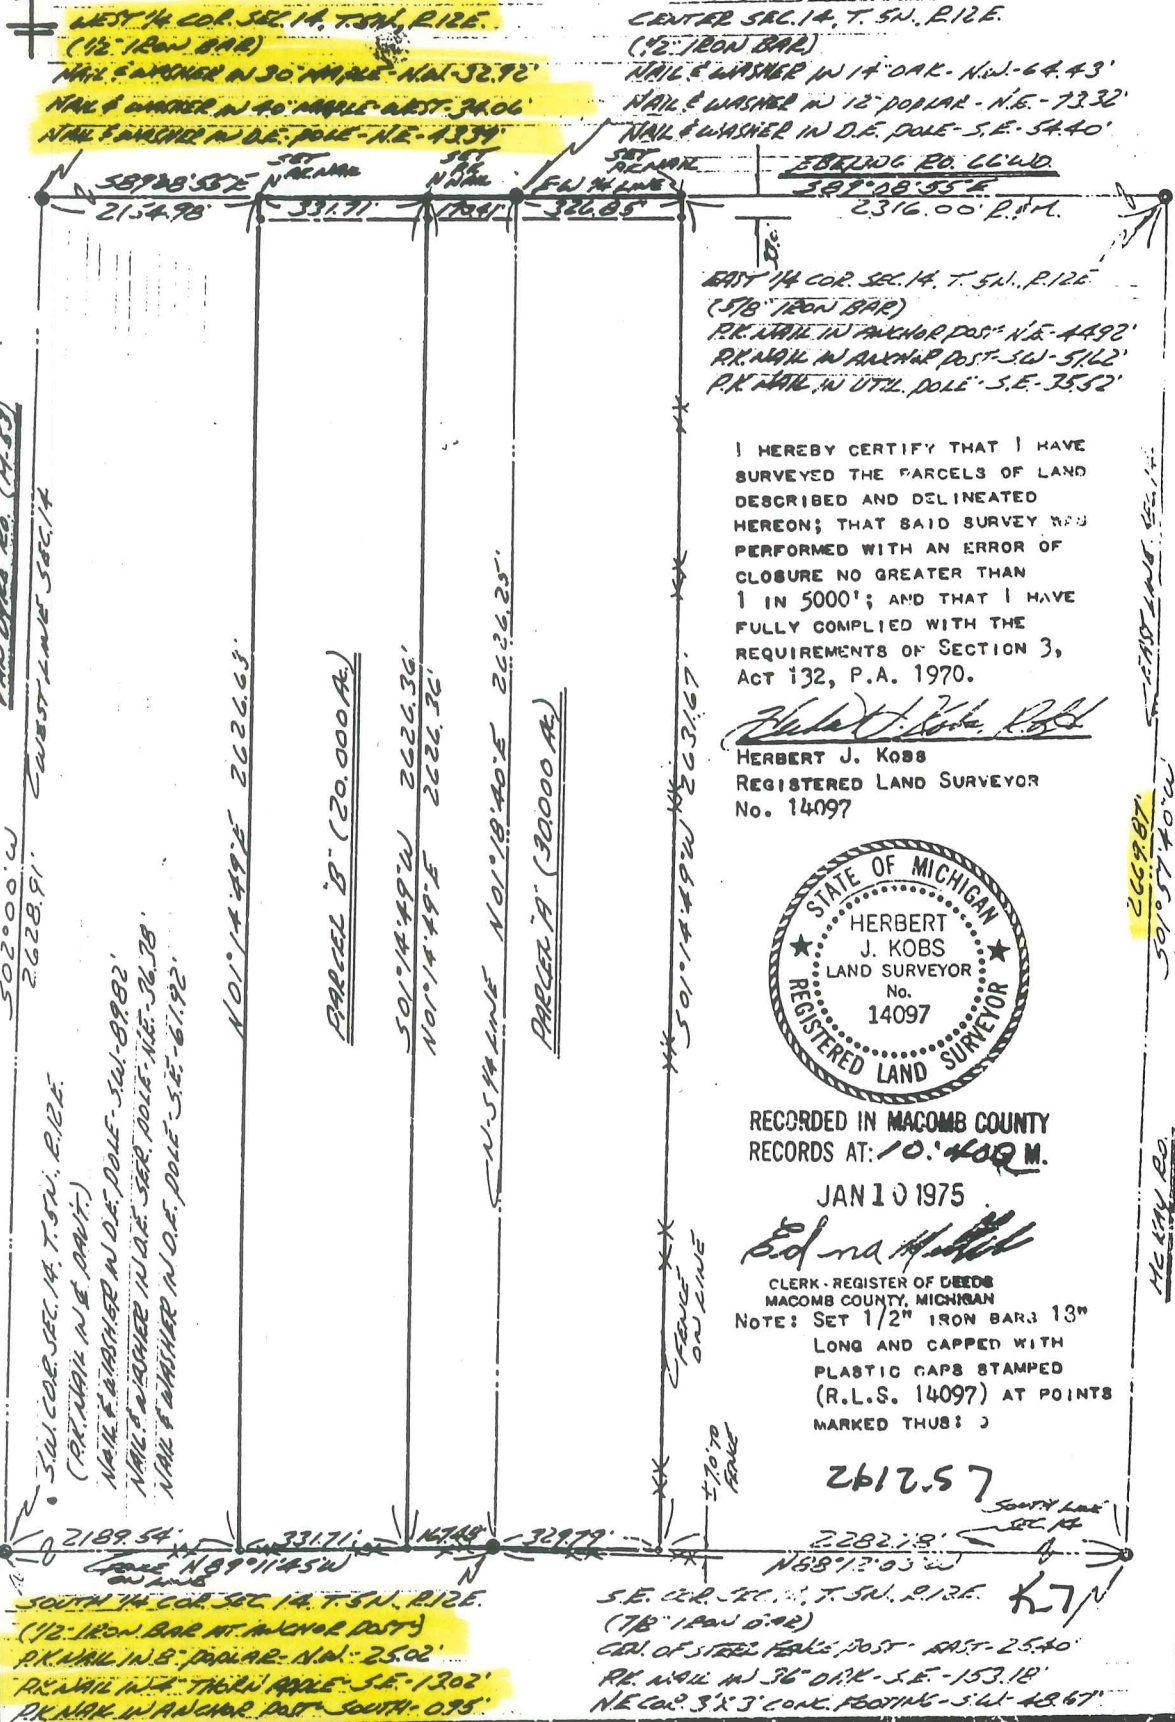 WEST 1/4 COR. SEC. 14, T.5N., R.12E.
(1/2" IRON BAR)
NAIL & WASHER IN 30" MAPLE - N.W. - 32.92'
NAIL & WASHER IN 40" MAPLE - WEST - 34.06'
NAIL & WASHER IN D.E. POLE - N.E. - 43.39'
CENTER SEC. 14, T. 5N., R.12E.
(1/2" IRON BAR)
NAIL & WASHER IN 14" OAK - N.W. - 64.43'
NAIL & WASHER IN 12" POPLAR - N.E. - 73.32'
NAIL & WASHER IN D.E. POLE - S.E. - 54.40'
SET P.K. NAIL
SET P.K. NAIL
SET P.K. NAIL
EBELING RD. 66' WD.
S89°08'55"E
E-W 1/4 LINE
S89°08'55"E
2154.98'
331.71'
170.41'
326.85'
2316.00' R.&M.
EAST 1/4 COR. SEC. 14, T. 5N., R.12E
(5/8" IRON BAR)
P.K. NAIL IN ANCHOR POST - N.E. - 44.92'
P.K. NAIL IN ANCHOR POST - S.W. - 51.62'
P.K. NAIL IN UTIL. POLE - S.E. - 35.52'
I HEREBY CERTIFY THAT I HAVE
SURVEYED THE PARCELS OF LAND
DESCRIBED AND DELINEATED
HEREON; THAT SAID SURVEY WAS
PERFORMED WITH AN ERROR OF
CLOSURE NO GREATER THAN
1 IN 5000'; AND THAT I HAVE
FULLY COMPLIED WITH THE
REQUIREMENTS OF SECTION 3,
ACT 132, P.A. 1970.
HERBERT J. KOBS
REGISTERED LAND SURVEYOR
No. 14097
STATE OF MICHIGAN
HERBERT
J. KOBS
LAND SURVEYOR
No.
14097
REGISTERED LAND SURVEYOR
RECORDED IN MACOMB COUNTY
RECORDS AT: 10:40 A M.
JAN 10 1975
Edna
CLERK - REGISTER OF DEEDS
MACOMB COUNTY, MICHIGAN
NOTE: SET 1/2" IRON BARS 18"
LONG AND CAPPED WITH
PLASTIC CAPS STAMPED
(R.L.S. 14097) AT POINTS
MARKED THUS:
VAN DYKE RD. (M.53)
WEST LINE SEC. 14
S02°00'W
2628.91'
N01°14'49"E 2626.63'
PARCEL "B" (20.000 Ac.)
S01°14'49"W 2626.36'
N01°14'49"E 2626.36'
N-S 1/4 LINE N01°18'40"E 2626.25'
PARCEL "A" (30.000 Ac.)
S01°14'49"W 2631.67'
FENCE
ON LINE
EAST LINE SEC. 14
2669.87'
S01°57'40"W
MCKAY RD.
S.W. COR. SEC. 14, T. 5N., R.12E.
(P.K. NAIL IN & PAV'T.)
NAIL & WASHER IN D.E. POLE - S.W. - 89.82'
NAIL & WASHER IN D.E. SER. POLE - N.E. - 36.38'
NAIL & WASHER IN D.E. POLE - S.E. - 61.92'
±7.0' TO
FENCE
SOUTH LINE
SEC. 14
2189.54'
331.71'
167.48'
329.79'
2282.18'
FENCE
ON LINE
N89°11'45"W
N88°12'03"W
SOUTH 1/4 COR. SEC. 14, T. 5N., R.12E.
(1/2" IRON BAR AT ANCHOR POST)
P.K. NAIL IN 8" POPLAR - N.W. - 25.02'
P.K. NAIL IN 4" THORN APPLE - S.E. - 13.02'
P.K. NAIL IN ANCHOR POST - SOUTH - 0.95'
S.E. COR. SEC. 14, T. 5N., R.12E.
(7/8" IRON BAR)
CEN. OF STEEL FENCE POST - EAST - 25.40'
P.K. NAIL IN 36" OAK - S.E. - 153.18'
N.E. COR. 3' X 3' CONC. FOOTING - S.W. - 48.67'